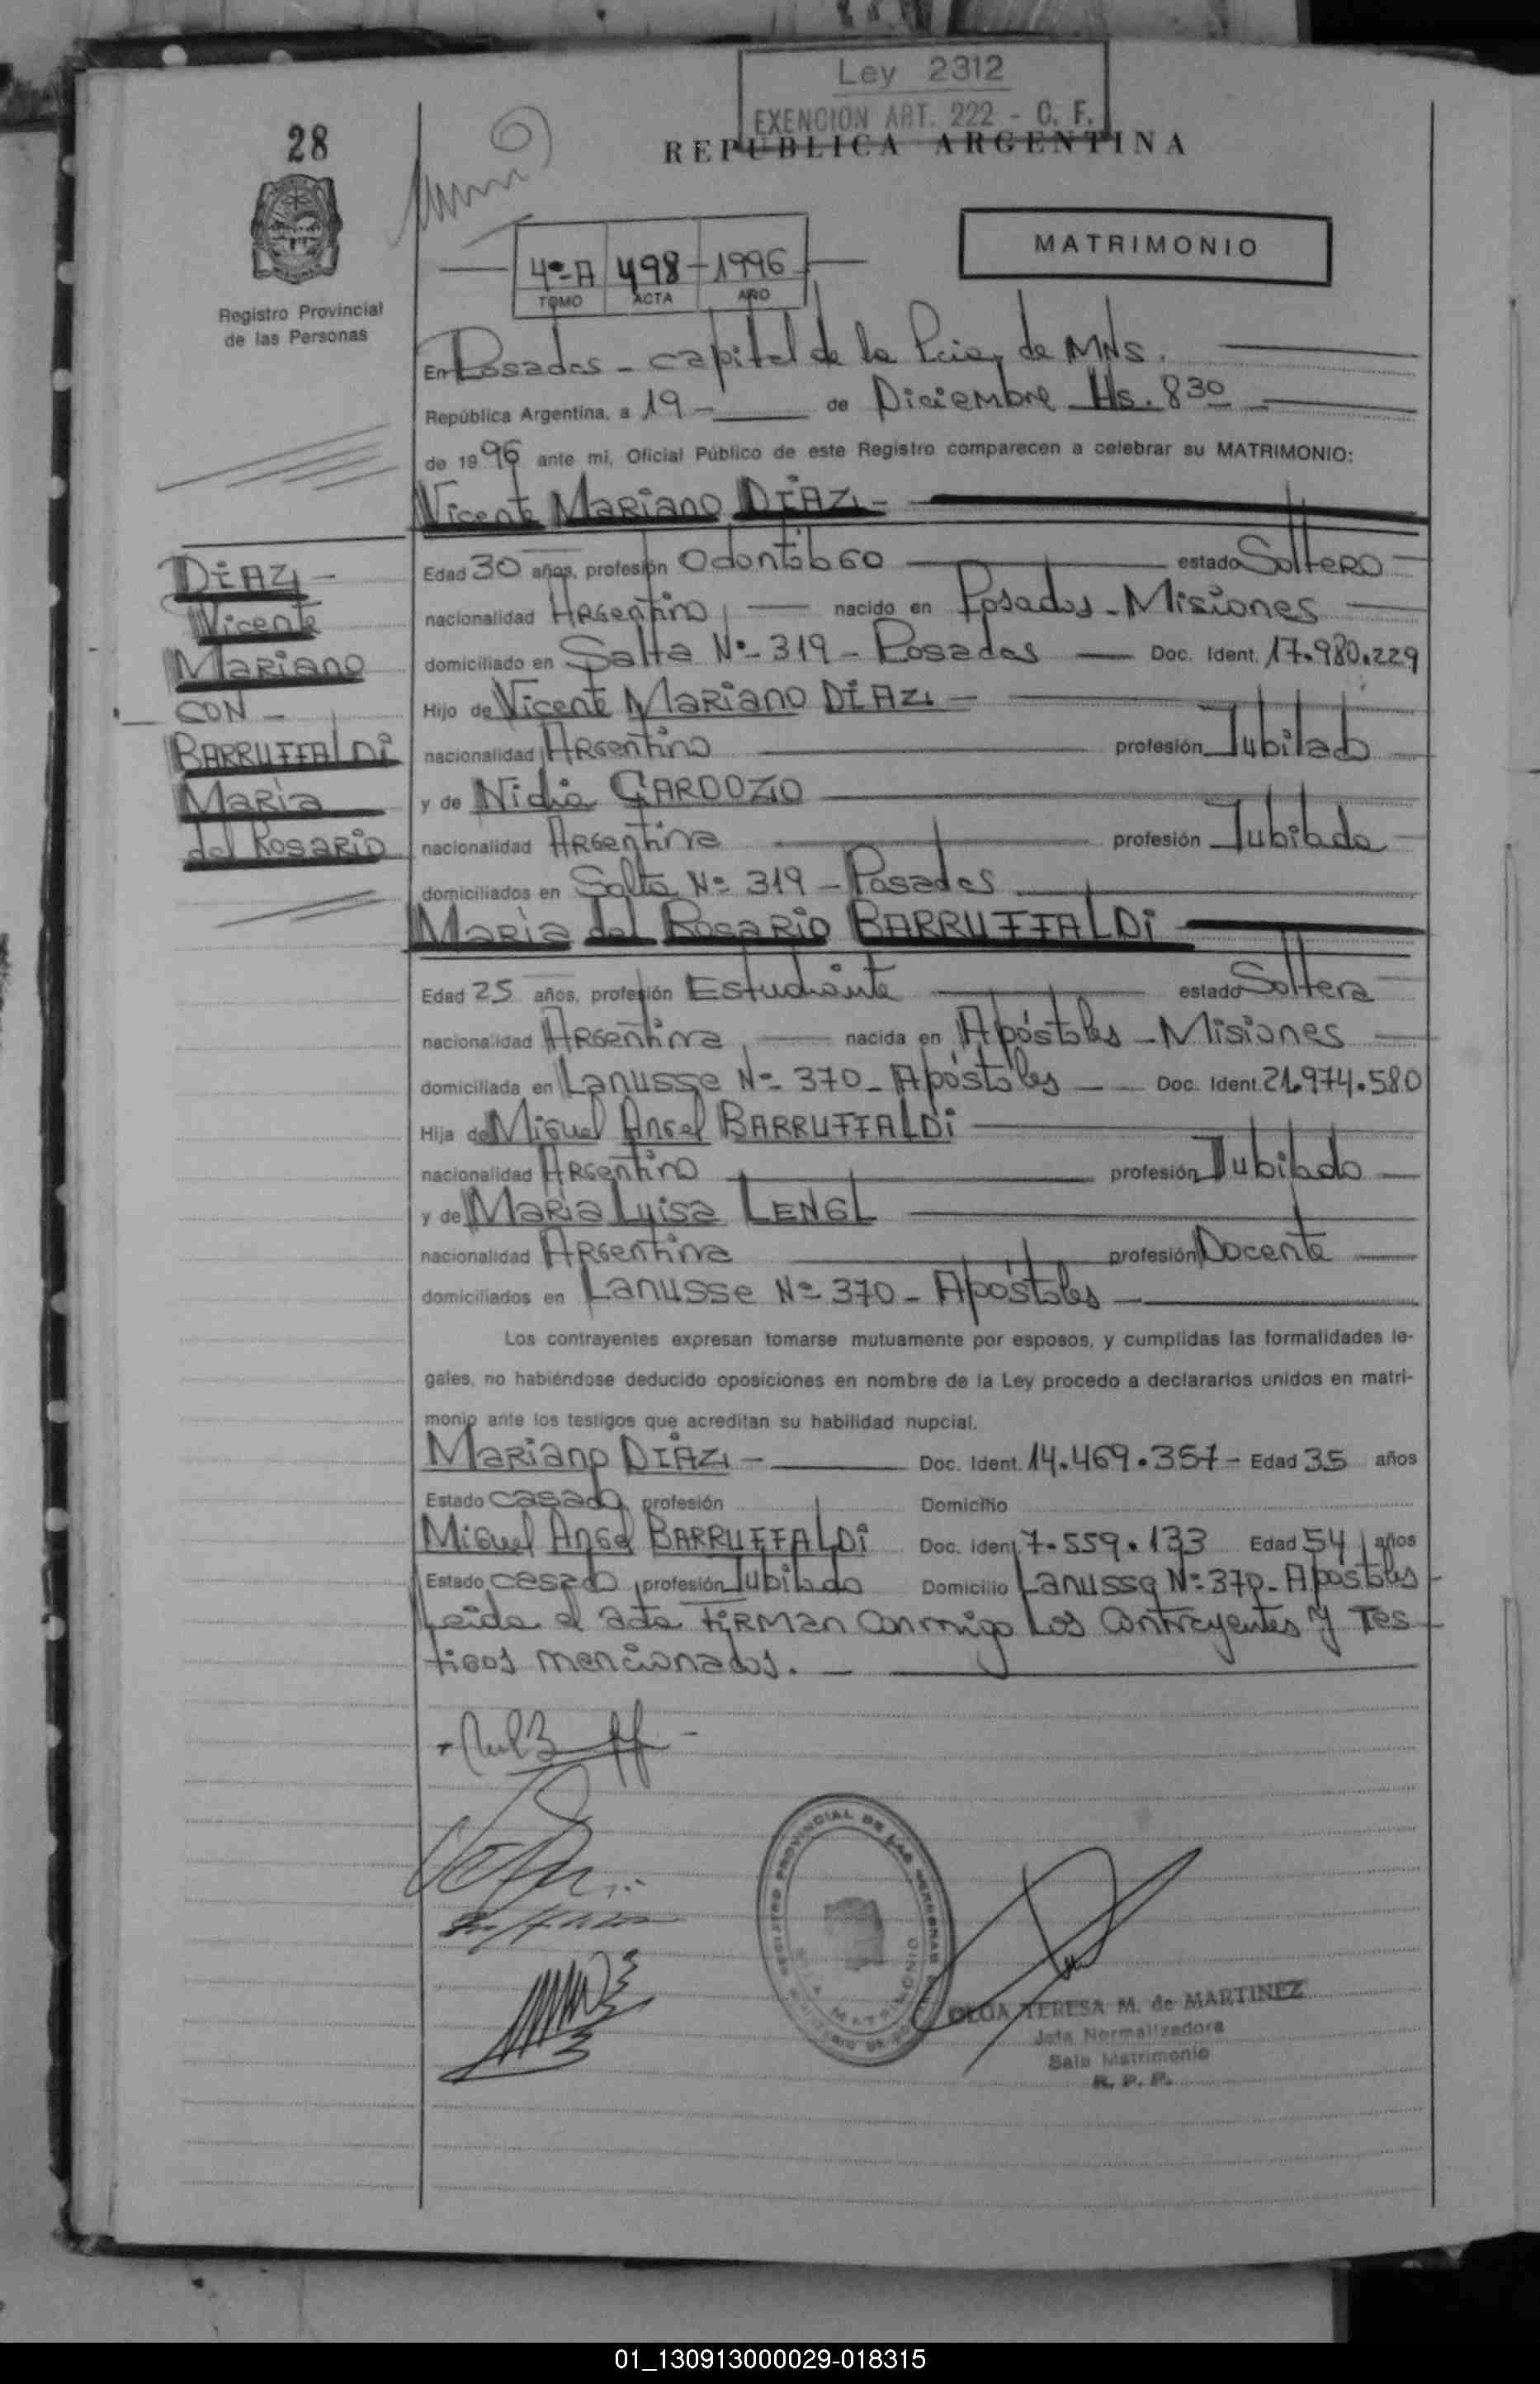 Ley 2312
EXENCION ART. 222 - C. F.
28
REPUBLICA ARGENTINA
MATRIMONIO
4º-A 498 - 1996
TOMO ACTA AÑO
Registro Provincial
de las Personas
En Posadas - capital de la Pcia, de MNS.
República Argentina, a 19 - de Diciembre Hs. 830
de 1996 ante mi, Oficial Público de este Registro comparecen a celebrar su MATRIMONIO:
Vicente Mariano DÍAZ -
DÍAZ -
Vicente
Mariano
CON -
BARRUFFALDI
María
del Rosario
Edad 30 años, profesión Odontólogo estado Soltero
nacionalidad Argentino, nacido en Posadas - Misiones
domiciliado en Salta Nº 319 - Posadas Doc. Ident. 17.980.229
Hijo de Vicente Mariano DÍAZ -
nacionalidad Argentino profesión Jubilado
y de Nidia CARDOZO
nacionalidad Argentina profesión Jubilada
domiciliados en Salta Nº 319 - Posadas
María del Rosario BARRUFFALDI
Edad 25 años, profesión Estudiante estado Soltera
nacionalidad Argentina, nacida en Apóstoles - Misiones
domiciliada en Lanusse Nº 370 - Apóstoles Doc. Ident. 21.974.580
Hija de Miguel Angel BARRUFFALDI
nacionalidad Argentino profesión Jubilado
y de María Luisa LENGL
nacionalidad Argentina profesión Docente
domiciliados en Lanusse Nº 370 - Apóstoles
Los contrayentes expresan tomarse mutuamente por esposos, y cumplidas las formalidades le-
gales, no habiéndose deducido oposiciones en nombre de la Ley procedo a declararlos unidos en matri-
monio ante los testigos que acreditan su habilidad nupcial.
Mariano DÍAZ - Doc. Ident. 14.469.357 - Edad 35 años
Estado casado, profesión Domicilio
Miguel Angel BARRUFFALDI Doc. Ident. 7.559.133 Edad 54 años
Estado casado, profesión Jubilado Domicilio Lanusse Nº 370 - Apóstoles
Leída el acta firman conmigo los contrayentes y tes
tigos mencionados. -
REGISTRO PROVINCIAL DE LAS PERSONAS
MATRIMONIO
OLGA TERESA M. de MARTINEZ
Jefa Normalizadora
Sala Matrimonio
R. P. P.
01_130913000029-018315